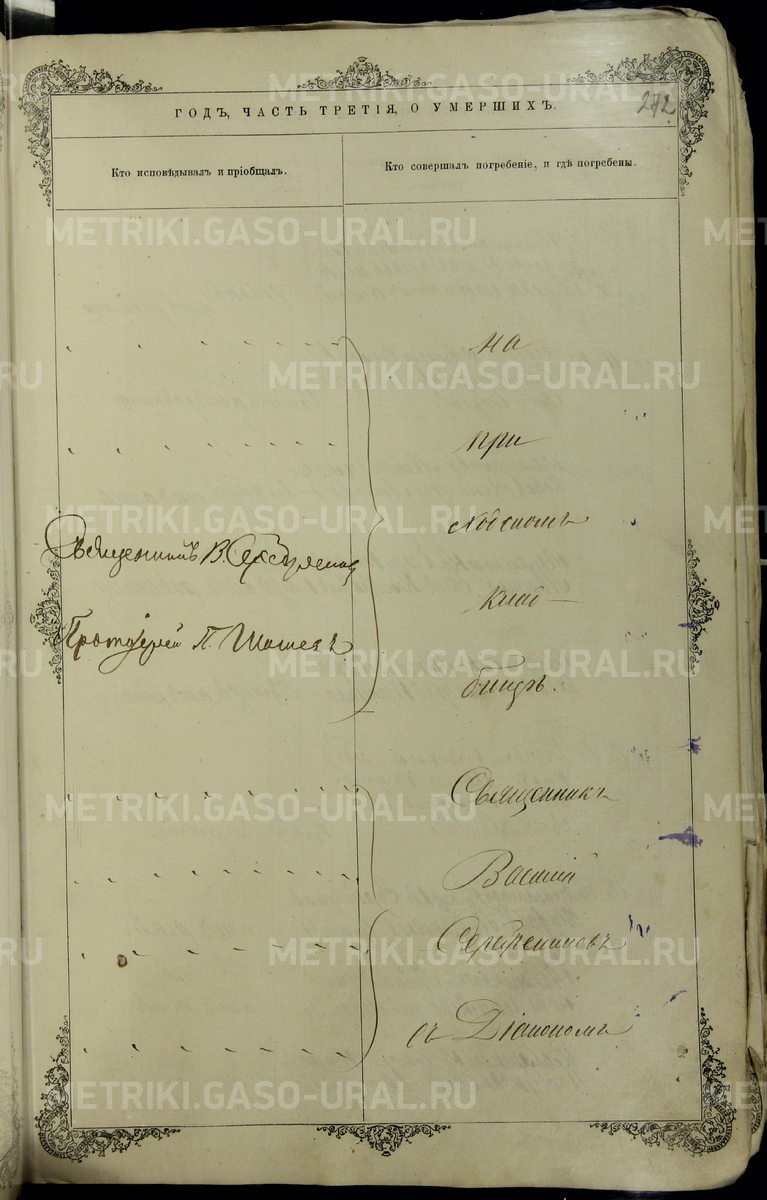 272
ГОДЪ, ЧАСТЬ ТРЕТІЯ, О УМЕРШИХЪ.
Кто исповѣдывалъ и пріобщалъ.
Кто совершалъ погребеніе, и гдѣ погребены.
на
при
ходскомъ
клад-
бищѣ.
Священникъ В.
Протоіерей П.
Священникъ
Василій
Серебренниковъ
съ Діакономъ
METRIKI.GASO-URAL.RU